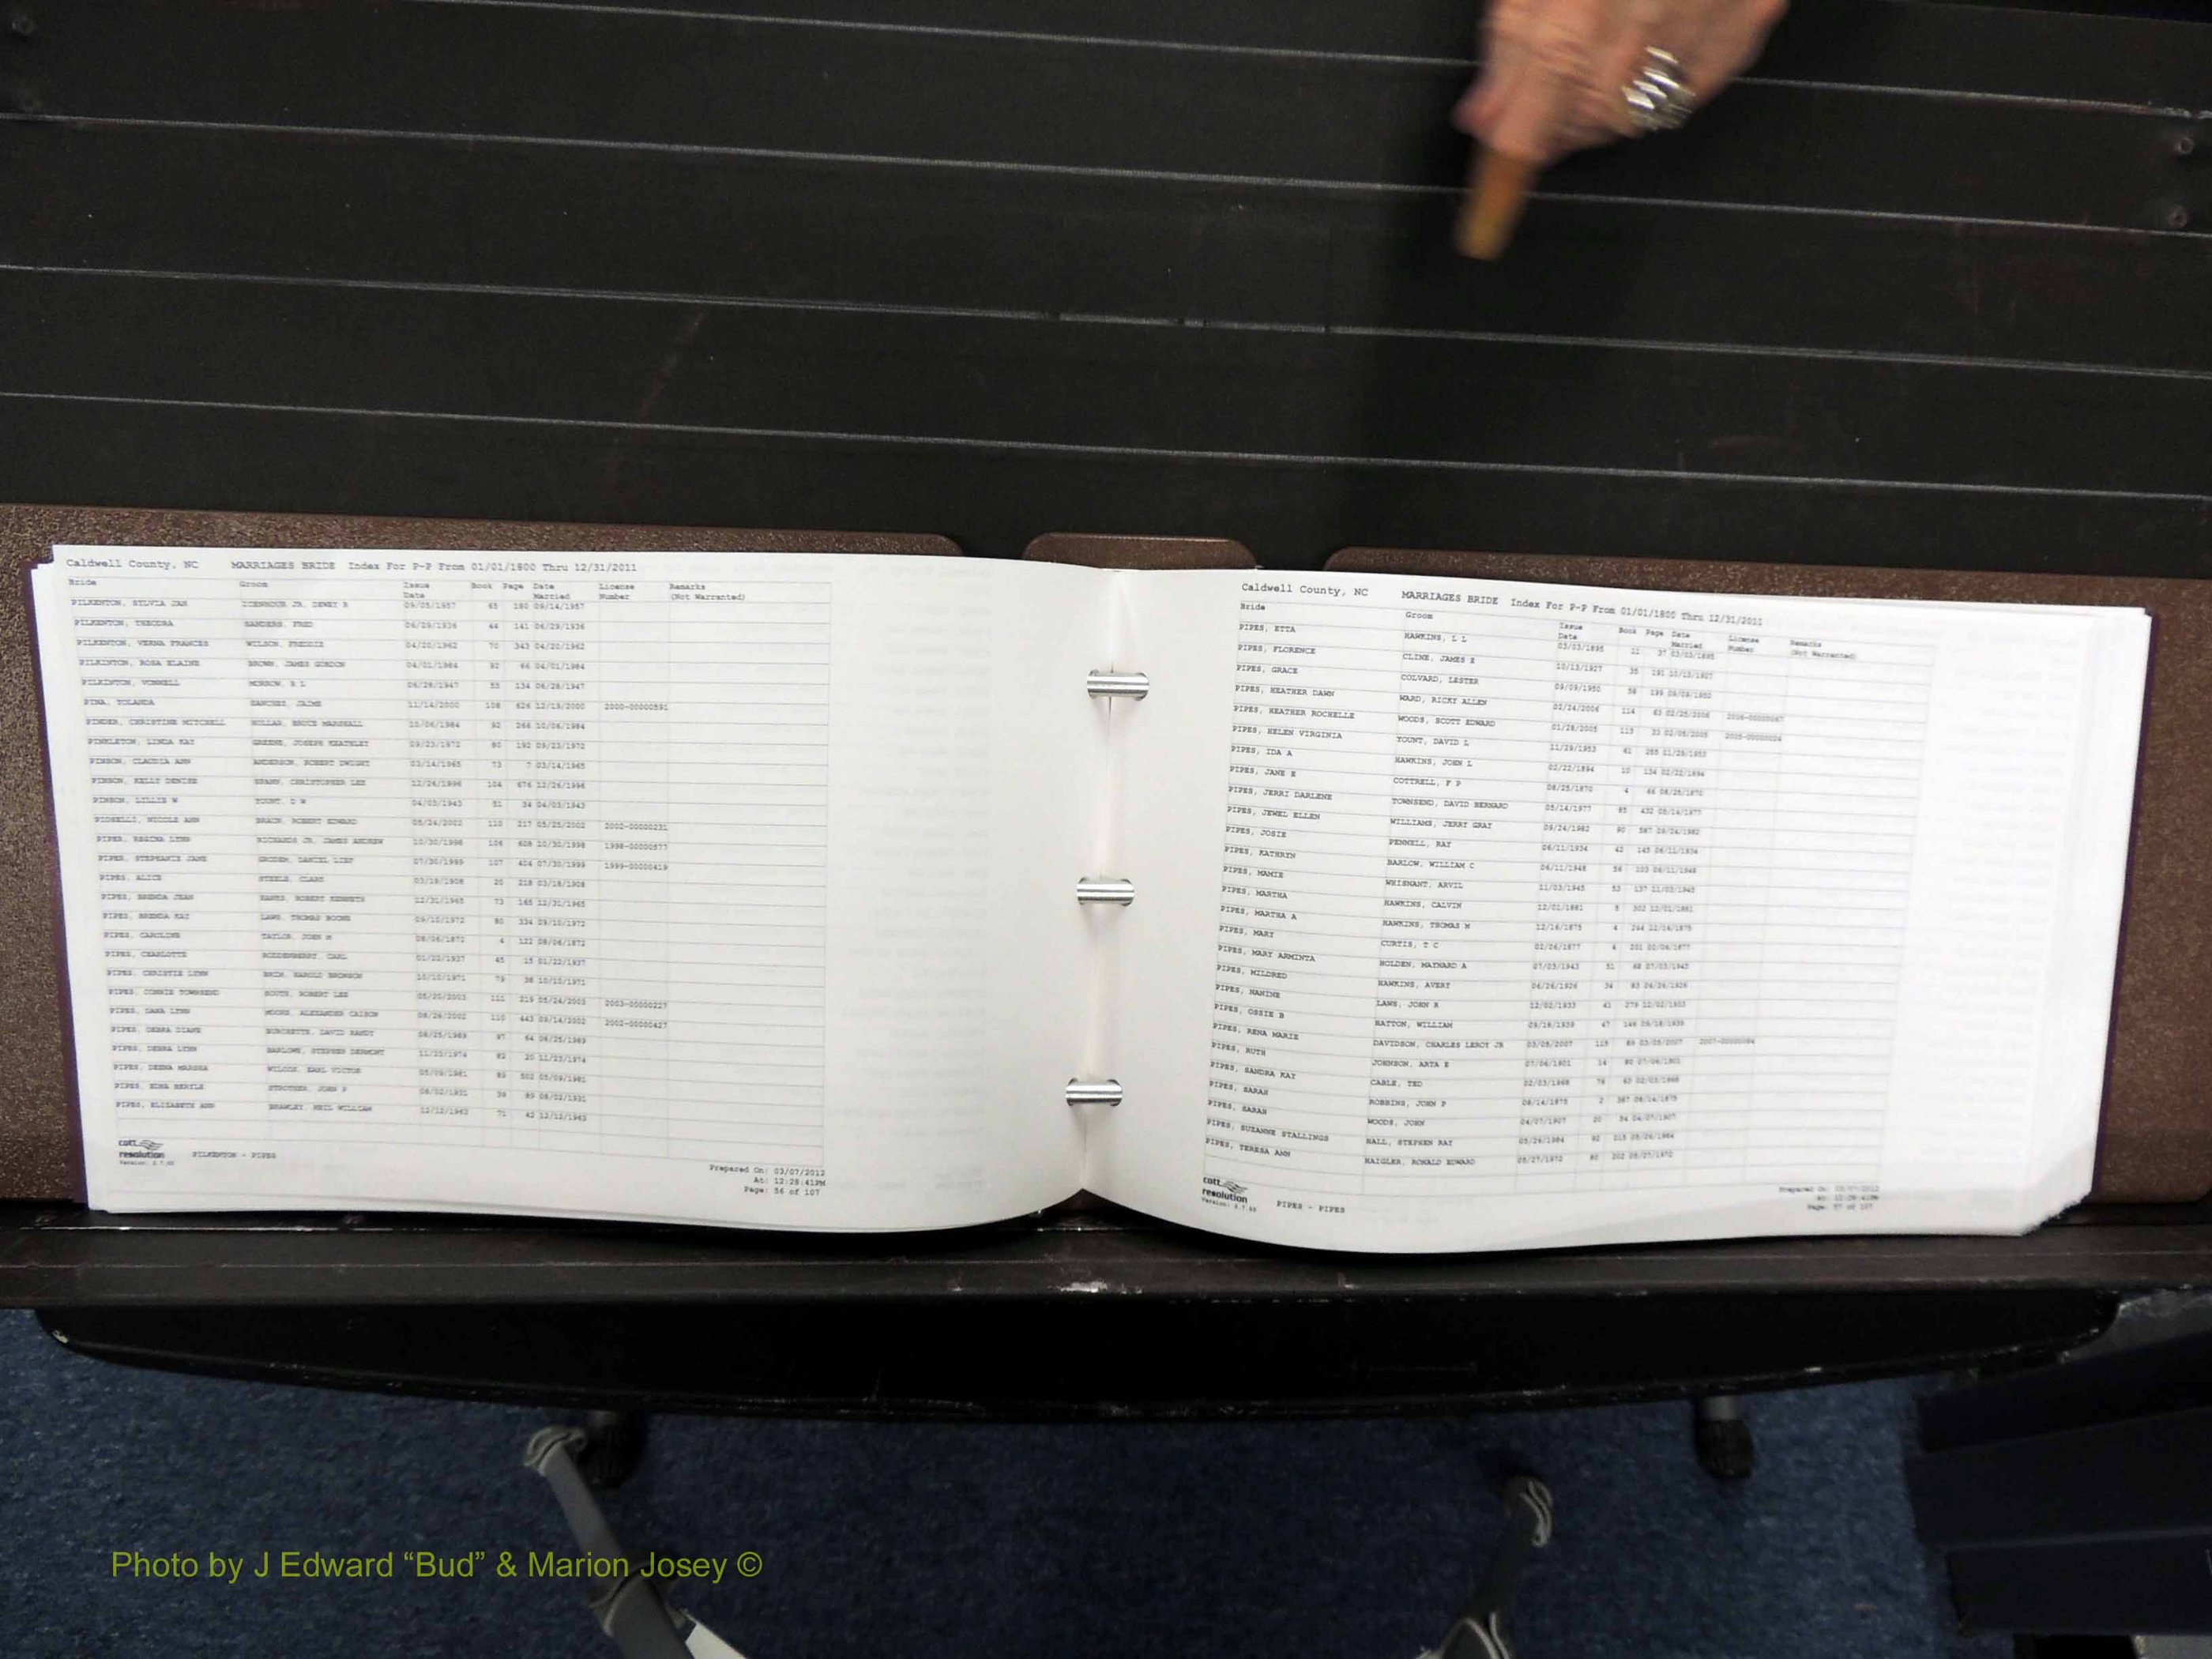 Caldwell County, NC MARRIAGES BRIDE Index For P-P From 01/01/1800 Thru 12/31/2011
Bride Groom Issue Date Book Page Date Married License Number Remarks (Not Warranted)
PILKENTON, SYLVIA JAN ICENHOUR JR, DEWEY R 09/05/1957 65 180 09/14/1957
PILKENTON, THEODRA SANDERS, FRED 06/29/1936 44 141 06/29/1936
PILKENTON, VERNA FRANCES WILSON, FREDDIE 04/20/1962 70 343 04/20/1962
PILKINTON, ROSA ELAINE BROWN, JAMES GORDON 04/01/1984 92 66 04/01/1984
PILKINTON, VONNELL MORROW, R L 06/28/1947 55 134 06/28/1947
PINA, YOLANDA SANCHEZ, JAIME 11/14/2000 108 626 12/19/2000 2000-00000591
PINDER, CHRISTINE MITCHELL HOLLAR, BRUCE MARSHALL 10/06/1984 92 266 10/06/1984
PINKLETON, LINDA KAY GREENE, JOSEPH KEATHLEY 09/23/1972 80 192 09/23/1972
PINSON, CLAUDIA ANN ANDERSON, ROBERT DWIGHT 03/14/1965 73 7 03/14/1965
PINSON, KELLY DENISE SPANN, CHRISTOPHER LEE 12/26/1996 104 676 12/26/1996
PINSON, LILLIE W YOUNT, D W 04/03/1943 51 34 04/03/1943
PIOSELLI, NICOLE ANN BRAUN, ROBERT EDWARD 05/24/2002 110 217 05/25/2002 2002-00000231
PIPER, REGINA LYNN RICHARDS JR, JAMES ANDREW 10/30/1998 106 608 10/30/1998 1998-00000577
PIPER, STEPHANIE JANE DANIEL 07/30/1999 107 404 07/30/1999 1999-00000419
PIPES, ALICE STEELE, CLARK 03/18/1908 20 218 03/18/1908
PIPES, BRENDA JEAN HAWKS, ROBERT KENNETH 12/31/1965 73 165 12/31/1965
PIPES, BRENDA KAY LAWS, THOMAS BOONE 09/10/1972 80 334 09/10/1972
PIPES, CAROLINE TAYLOR, JOHN M 08/06/1872 4 122 08/06/1872
PIPES, CHARLOTTE CARL 01/22/1937 45 15 01/22/1937
PIPES, CHRISTIE LYNN BRIM, HAROLD BRONSON 10/10/1971 79 38 10/10/1971
PIPES, CONNIE TOWNSEND SOUTH, ROBERT LEE 05/20/2003 111 219 05/24/2003 2003-00000227
PIPES, DANA LYNN MOORE, ALEXANDER CAISON 08/26/2002 110 443 09/14/2002 2002-00000427
PIPES, DEBRA DIANE BURCHETTE, DAVID RANDY 08/25/1989 97 64 08/25/1989
PIPES, DEBRA LYNN BARLOWE, STEPHEN DERMONT 11/23/1974 82 20 11/23/1974
PIPES, DEENA MARSHA WILCOX, EARL VICTOR 05/09/1981 89 502 05/09/1981
PIPES, EDNA BERYLE STROTHER, JOHN P 08/02/1931 39 89 08/02/1931
PIPES, ELIZABETH ANN BRAWLEY, NEIL WILLIAM 12/12/1963 71 42 12/12/1963
cott
resolution PILKENTON - PIPES
Prepared On: 03/07/2012
At: 12:28:41PM
Page: 56 of 107
Caldwell County, NC MARRIAGES BRIDE Index For P-P From 01/01/1800 Thru 12/31/2011
Bride Groom Issue Date Book Page Date Married License Number Remarks (Not Warranted)
PIPES, ETTA HAWKINS, L L 03/03/1895 11 37 03/03/1895
PIPES, FLORENCE CLINE, JAMES E 10/13/1927 35 191 10/13/1927
PIPES, GRACE COLVARD, LESTER 09/09/1950 58 199 09/09/1950
PIPES, HEATHER DAWN WARD, RICKY ALLEN 02/24/2006 114 63 02/25/2006 2006-00000067
PIPES, HEATHER ROCHELLE WOODS, SCOTT EDWARD 01/28/2005 113 33 02/05/2005 2005-00000024
PIPES, HELEN VIRGINIA YOUNT, DAVID L 11/28/1953 61 255 11/28/1953
PIPES, IDA A HAWKINS, JOHN L 02/22/1894 10 154 02/22/1894
PIPES, JANE E COTTRELL, F P 08/25/1870 4 46 08/25/1870
PIPES, JERRI DARLENE TOWNSEND, DAVID BERNARD 05/14/1977 85 432 05/14/1977
PIPES, JEWEL ELLEN WILLIAMS, JERRY GRAY 09/24/1982 90 567 09/24/1982
PIPES, JOSIE PENNELL, RAY 06/11/1934 42 145 06/11/1934
PIPES, KATHRYN BARLOW, WILLIAM C 06/11/1948 56 103 06/11/1948
PIPES, MAMIE WHISNANT, ARVIL 11/03/1945 53 137 11/03/1945
PIPES, MARTHA HAWKINS, CALVIN 12/01/1881 5 302 12/01/1881
PIPES, MARTHA A HAWKINS, THOMAS M 12/16/1875 4 244 12/16/1875
PIPES, MARY CURTIS, T C 02/06/1877 4 201 02/06/1877
PIPES, MARY ARMINTA HOLDEN, MAYNARD A 07/03/1943 51 68 07/03/1943
PIPES, MILDRED HAWKINS, AVERY 06/26/1926 34 83 06/26/1926
PIPES, NANINE LAWS, JOHN R 12/02/1933 41 279 12/02/1933
PIPES, OSSIE B HATTON, WILLIAM 09/18/1939 47 148 09/18/1939
PIPES, RENA MARIE DAVIDSON, CHARLES LEROY JR 03/05/2007 115 89 03/05/2007 2007-00000084
PIPES, RUTH JOHNSON, ARTA E 07/06/1901 14 80 07/06/1901
PIPES, SANDRA KAY CABLE, TED 02/03/1968 76 43 02/03/1968
PIPES, SARAH ROBBINS, JOHN P 08/14/1875 2 387 08/14/1875
PIPES, SARAH WOODS, JOHN 04/07/1907 20 54 04/07/1907
PIPES, SUZANNE STALLINGS HALL, STEPHEN RAY 05/26/1984 92 215 05/26/1984
PIPES, TERESA ANN HAIGLER, RONALD EDWARD 05/27/1972 80 202 05/27/1972
cott
resolution PIPES - PIPES
Prepared On: 03/07/2012
At: 12:28:41PM
Page: 57 of 107
Photo by J Edward “Bud” & Marion Josey ©